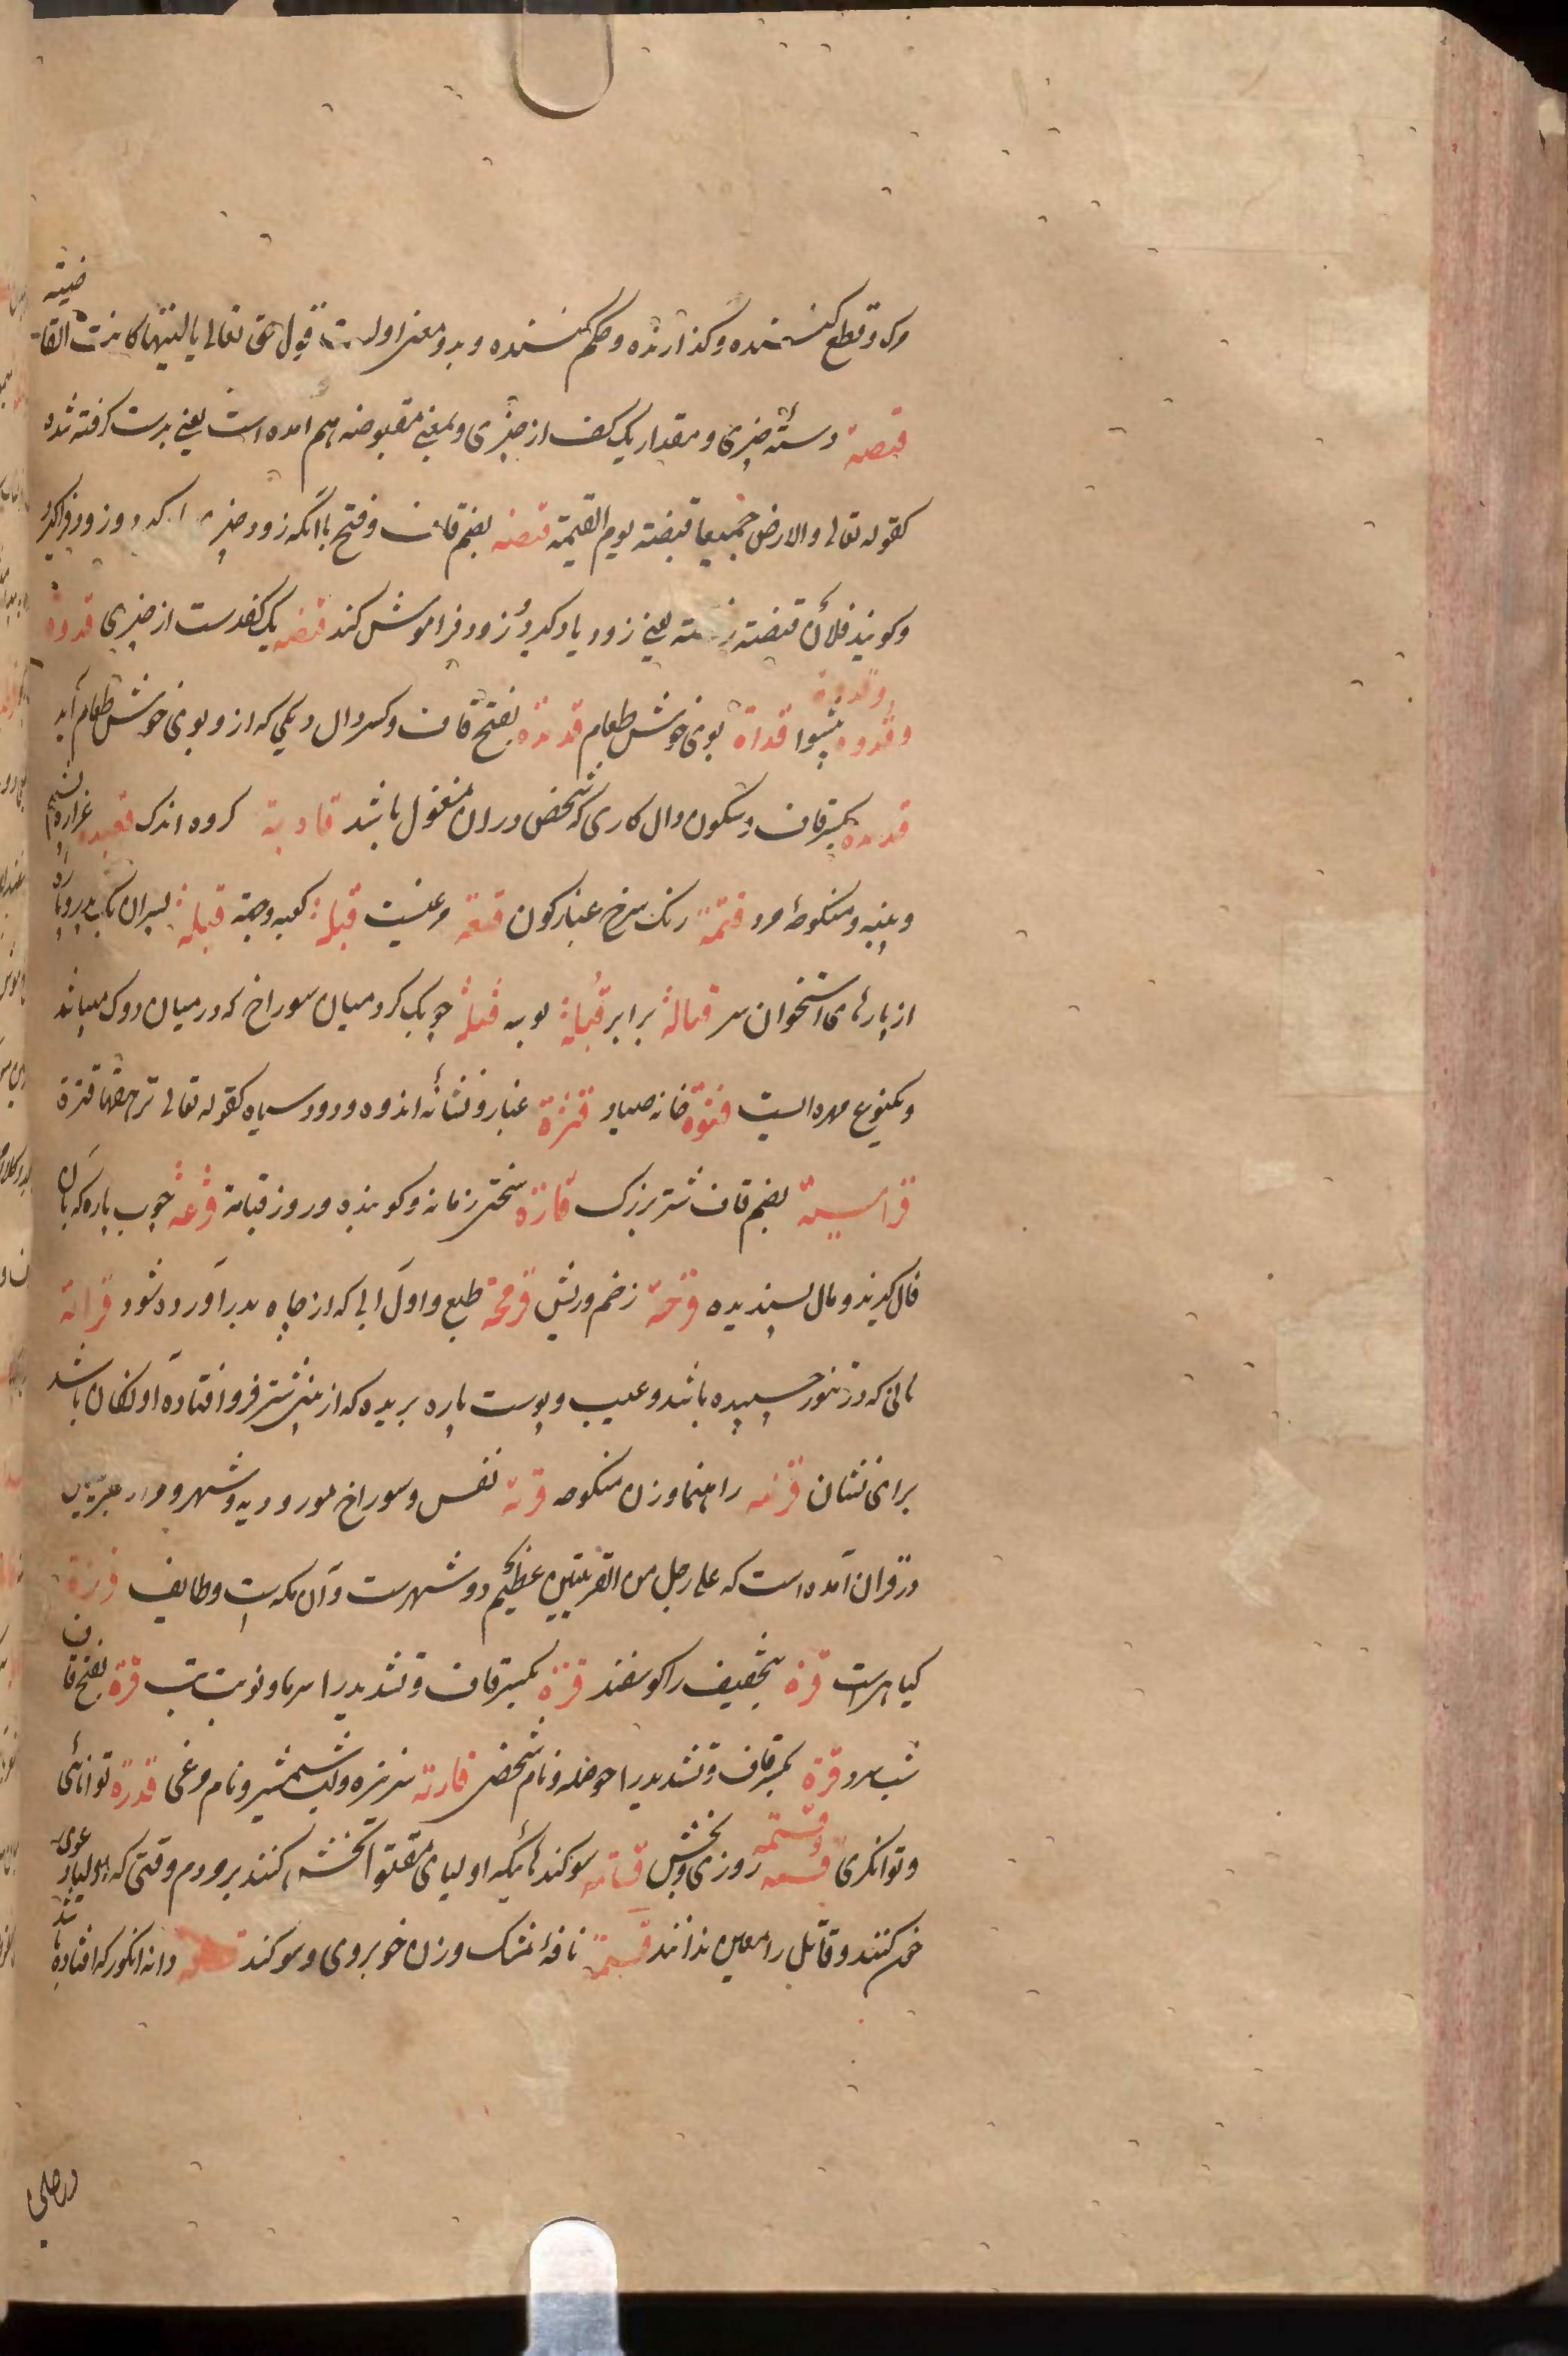 مرک و قطع کننده و گذارنده و حکم کننده و بدو معنی اول است قول حق تعالی یا لیتها کانت القاضیة
قبضة دستهٔ چیزی و مقدار یک کف از چیزی و بمعنی مقبوضه هم امده است یعنی بدست گرفته شده
کقوله تعالی والارض جمیعا قبضته یوم القیمة قبضه بضم قاف و فتح با آنکه زود چیزی را گیرد و زود
وکویند فلان قبضته یعنی زود یاد گیرد و زود فراموش کند قبضه یک کفدست از چیزی قدوة
وقدوة وقدوة پیشوا قداة بوی خوش طعام قدیة بفتح قاف و کسر دال دیکی که ازو بوی خوش طعام آید
قدیة بکسر قاف و سکون دال کاری که شخص دران مشغول باشد قادیة کروه اندک قعیدة غراره پشم
و پنبه و منکوحهٔ مرد قتمة رنک سرخ غبارکون قبعة مرغیست قبلة کعبه و جهة قبیلة پسران یک پدر و پاره
از پارهای استخوان سر قبالة برابر قبلة بوسه چوبک کرد میان سوراخ که در میان دوک میباشد
و یکنوع مهره ایست قترة خانه صیاد قترة غبار و نشانهٔ اندوه و دود سیاه کقوله تعالی ترهقها قترة
قراسیة بضم قاف شتر بزرک قارعة سختی زمانه و کوبنده و روز قیامة قرعة چوب پاره که بآن
فال گیرند و مال پسندیده قرحة زخم و ریش قریحة طبع و اول ابی که از چاه بدر آورده شود قرامة
نانی که در تنور چسپیده باشد و عیب و پوست پاره بریده که از بینی شتر فرو افتاده آونکان باشد
برای نشان قرینه راهنما و زن منکوحه قریة نفس و سوراخ مور و دیه و شهر و مراد عربیت
در قران آمده است که علی رجل من القریتین عظیم دو شهرست و آن مکه است و طایف
کیاهیست قرة بتخفیف را کوسفند قرة بکسر قاف و تشدید را سرما و نوبت تب قرة بفتح قاف
شب سرد قریة بکسر قاف و تشدید را حوصله و نام شخصی قاریة سر نیزه و لب شمشیر و نام مرغی قدرة توانائی
و توانکری قسمة قسمة روزی و بخش قسامة سوکندهائیکه اولیای مقتول بخش کنند بر مردم وقتی که اولیا دعوی
خون کنند و قاتل را معین ندانند قسیمة نافهٔ مشک و زن خوبروی و سوکند دانه انکور که افتاده باشد
درصلی